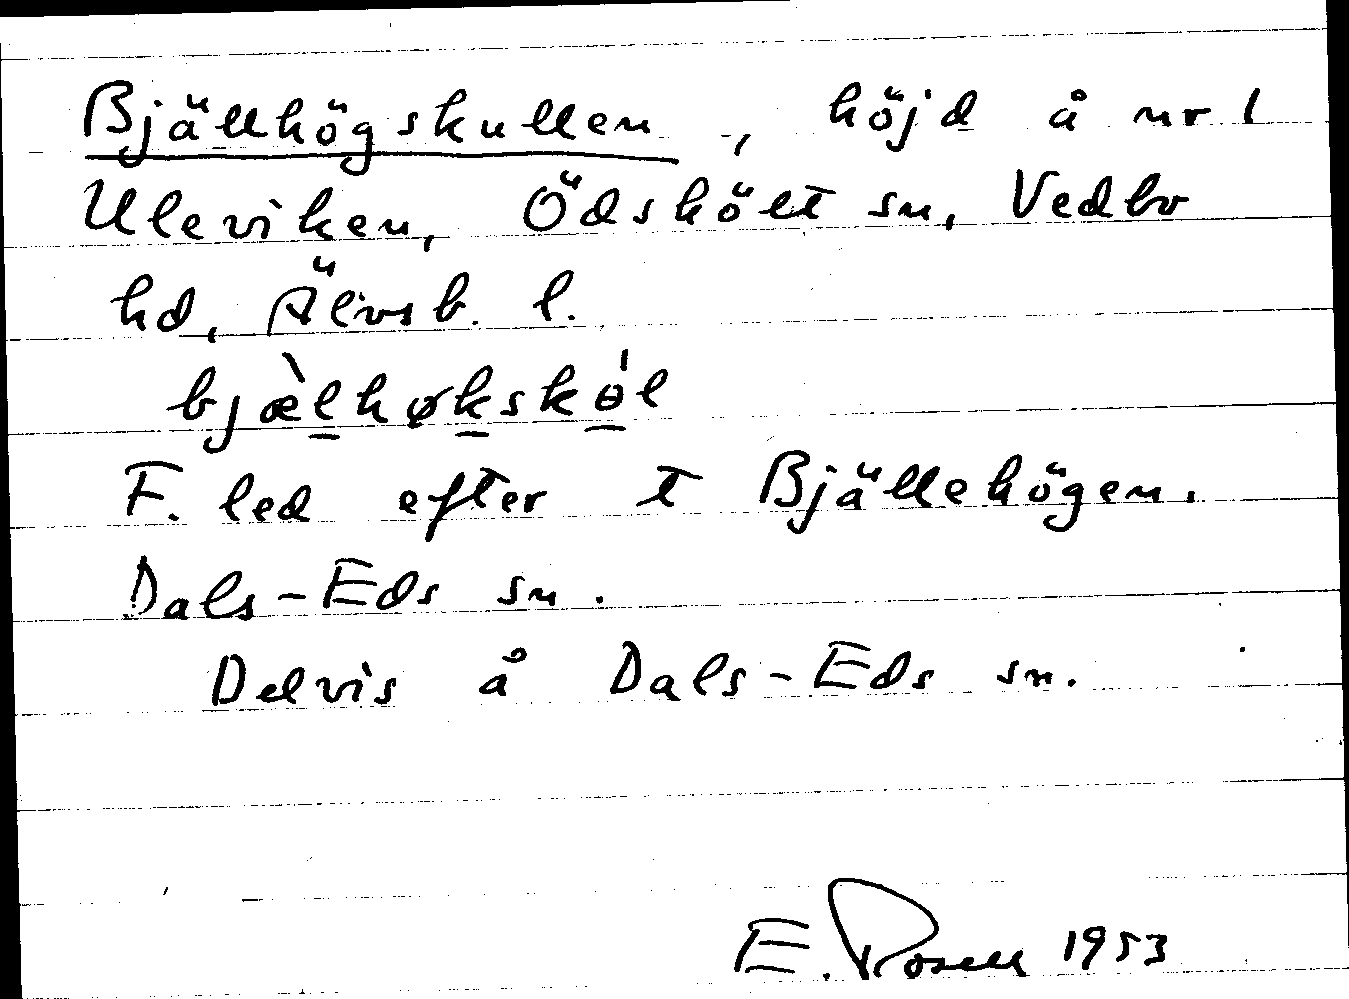 Bjällhögskullen, höjd å nr 1
Uleviken, Ödskölt sn, Vedbo
hd, Älvsb. l.
bjæ̀l̠høk̠skɵ̠́l
F. led efter t Bjällehögen.
Dals-Eds sn.
Delvis å Dals-Eds sn.
E. Rosell 1953